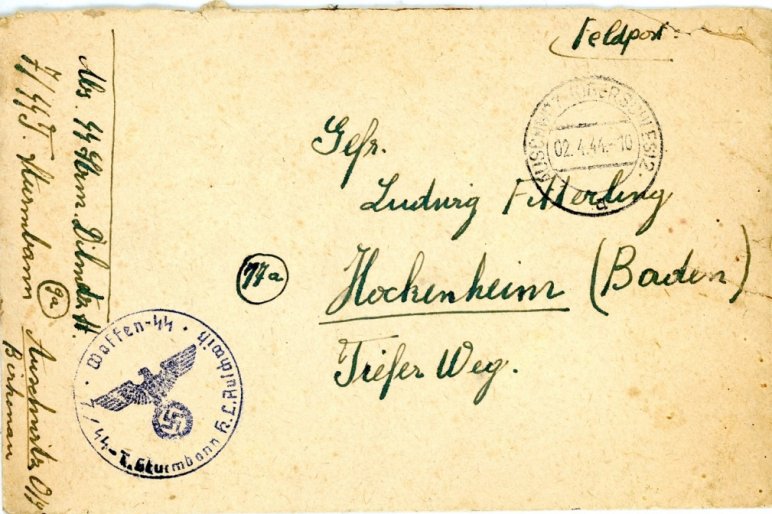 Feldpost.
AUSCHWITZ (OBERSCHLES)2.
02.4.44.-10
a
Gefr.
Ludwig
Hockenheim (Baden)
Tiefer Weg.
17a
Abs. SS
7/SS T. Sturmbann
9a
Auschwitz O/S
Birkenau
Waffen-SS
7/SS-T. Sturmbann K.L. Auschwitz